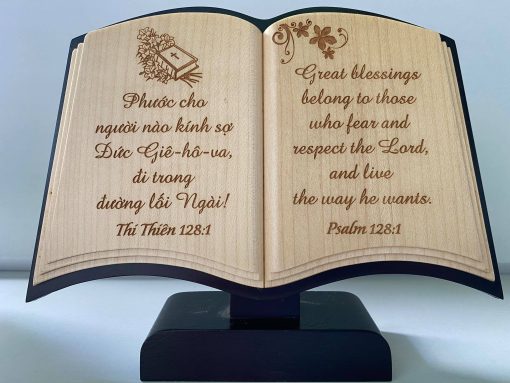 Phước cho
người nào kính sợ
Đức Giê-hô-va,
đi trong
đường lối Ngài!
Thi Thiên 128:1
Great blessings
belong to those
who fear and
respect the Lord,
and live
the way he wants.
Psalm 128:1